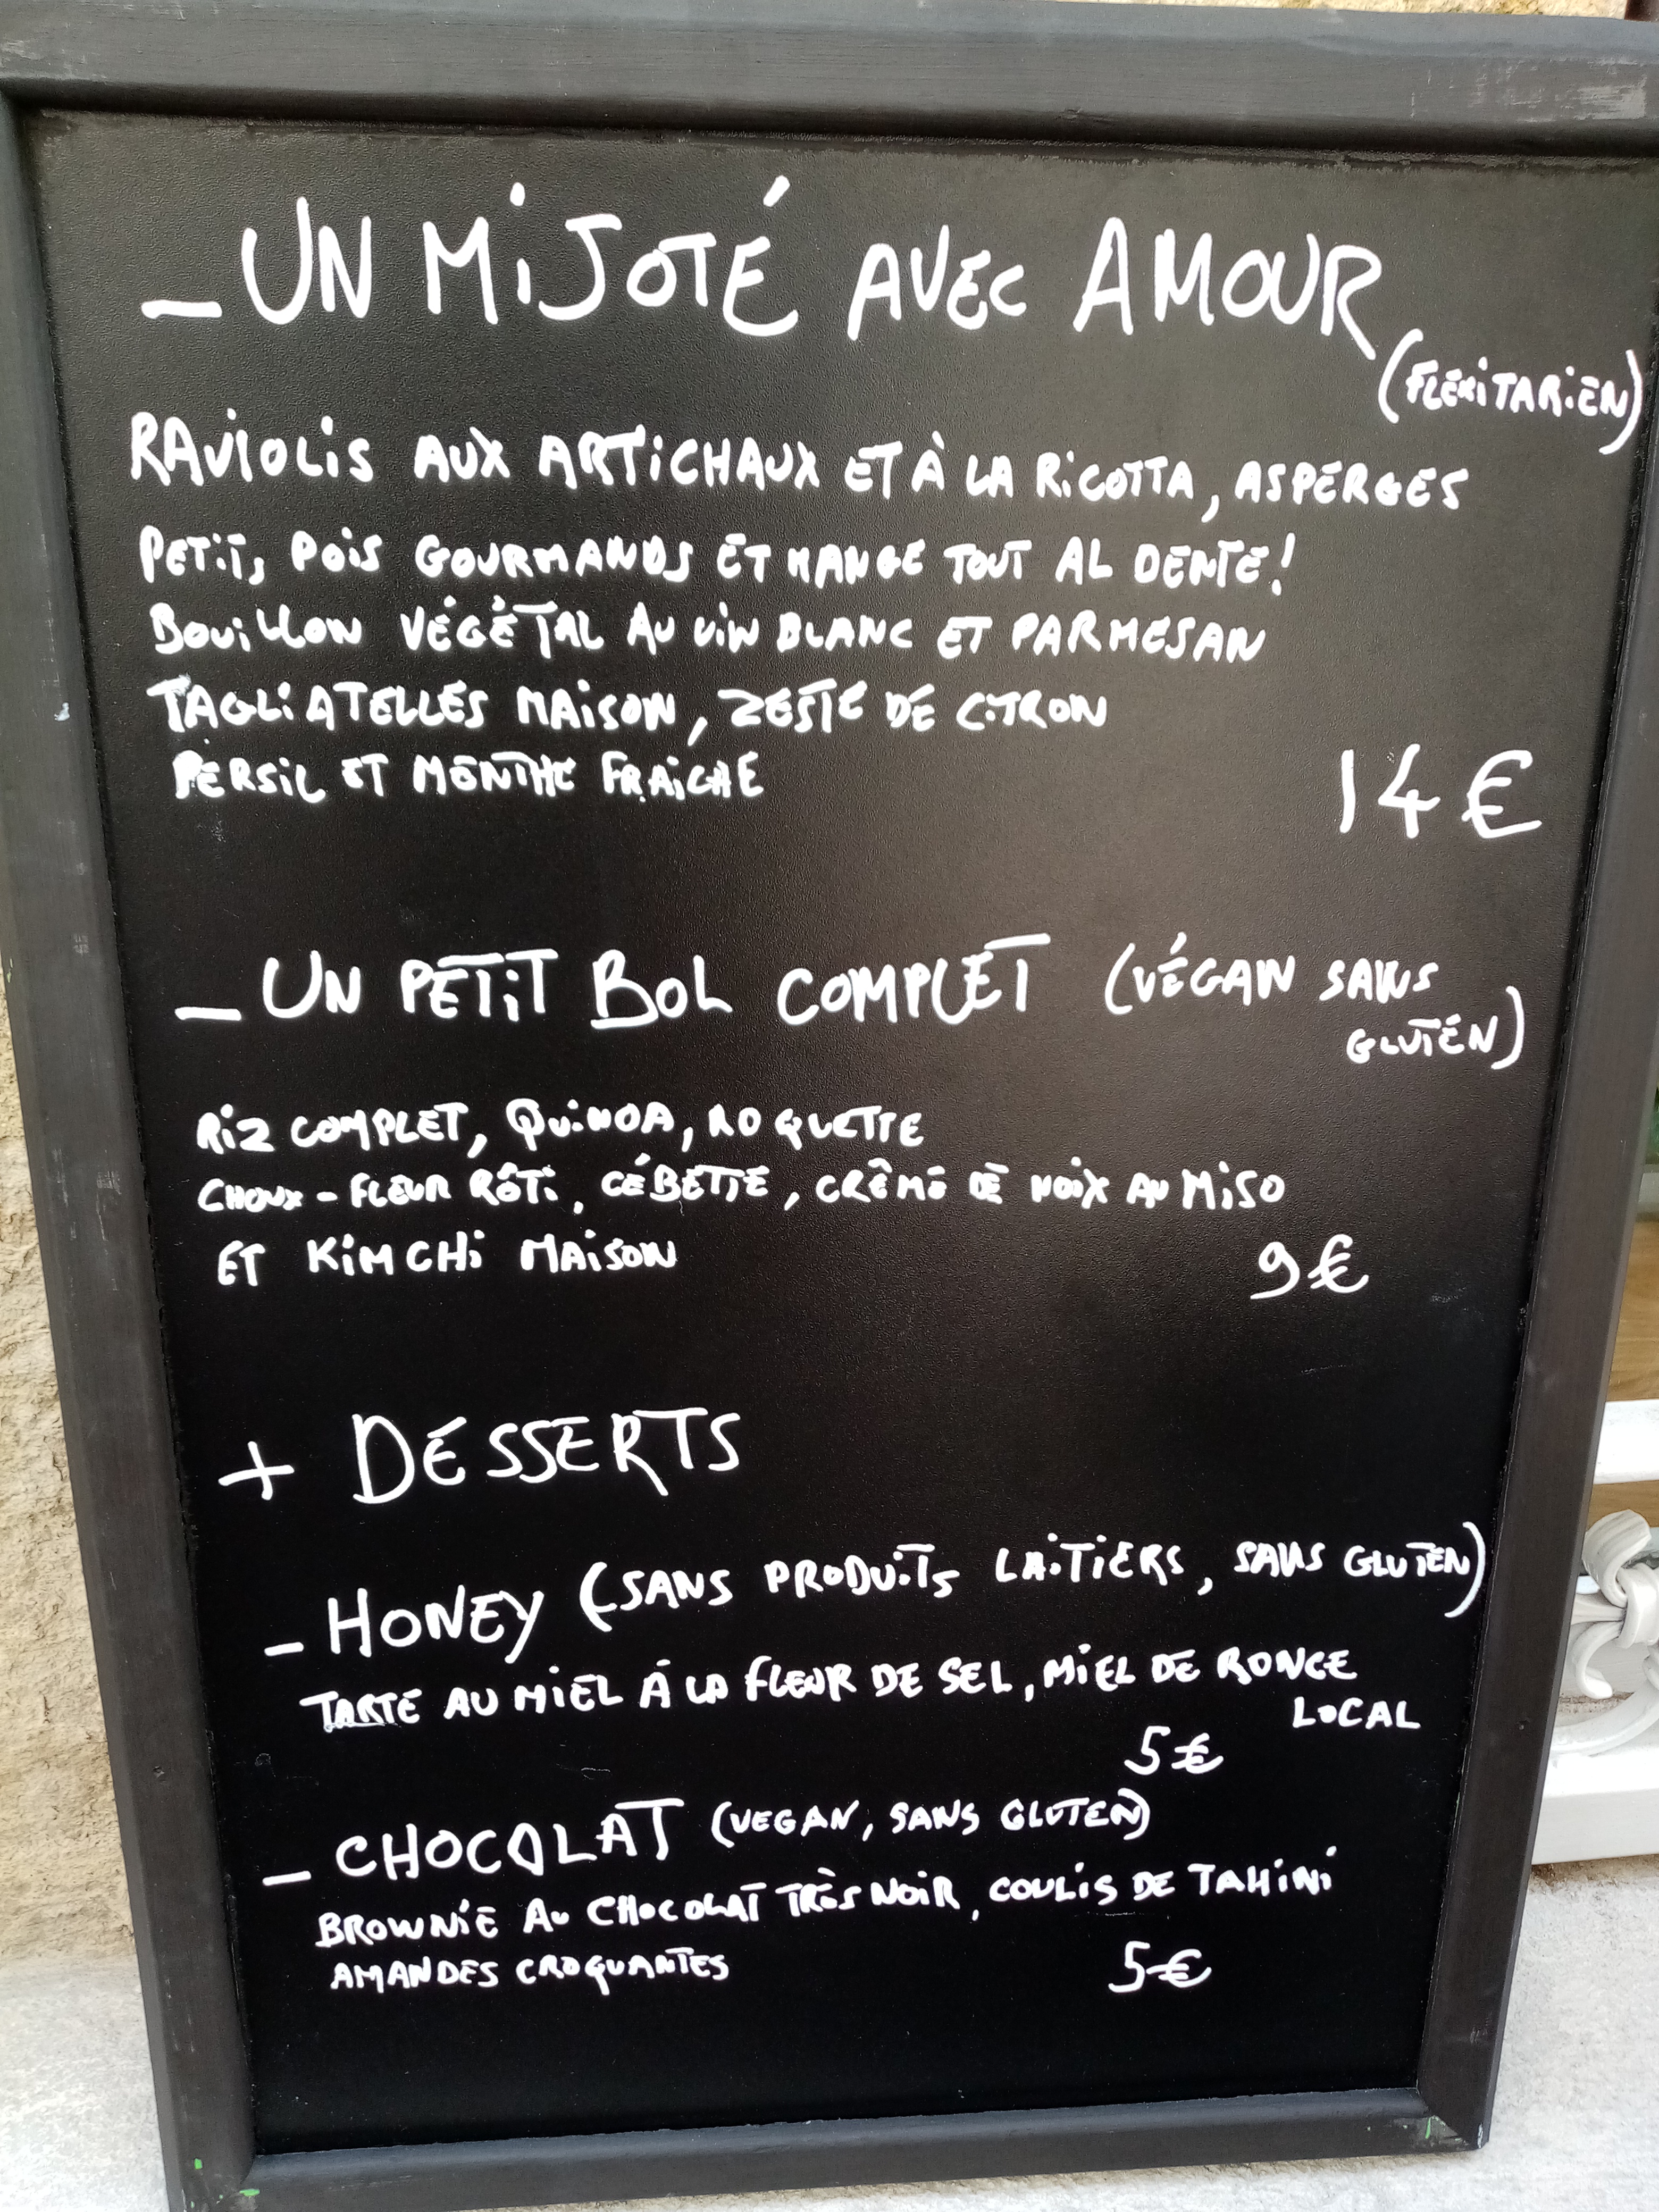 _ UN MiJOTÉ AVEC AMOUR
(FLEXITARIEN)
RAVIOLIS AUX ARTICHAUX ET À LA RICOTTA, ASPERGES
PETITS POIS GOURMANDS ET MANGE TOUT AL DENTE!
BOUILLON VÉGÉTAL AU VIN BLANC ET PARMESAN
TAGLIATELLES MAISON, ZESTE DE CITRON
PERSIL ET MENTHE FRAICHE
14€
_ UN PETIT BOL COMPLET (VÉGAN SANS
GLUTÉN)
RIZ COMPLET, QUINOA, ROQUETTE
CHOUX-FLEUR RÔTI, CÉBETTE, CRÊME DE NOIX AU MISO
ET KIMCHI MAISON
9€
+ DÉSSERTS
_ HONEY (SANS PRODUITS LAITIERS, SANS GLUTEN)
TARTE AU MIEL À LA FLEUR DE SEL, MIEL DE RONCE
LOCAL
5€
_ CHOCOLAT (VEGAN, SANS GLUTEN)
BROWNIE AU CHOCOLAT TRÈS NOIR, COULIS DE TAHINI
AMANDES CROQUANTES
5€